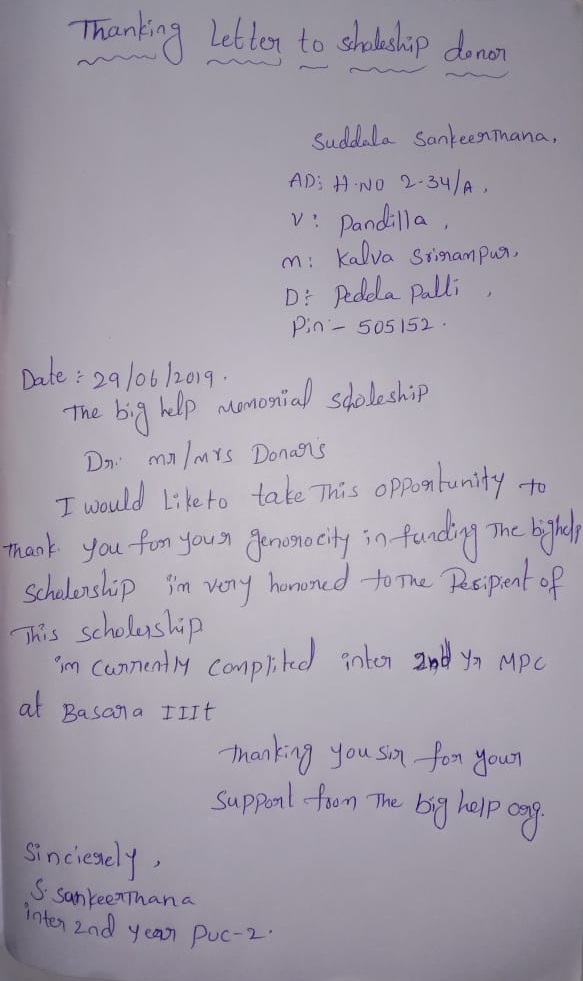 Thanking Letter to scholeship donor
Suddala Sankeerthana,
AD: H.NO 2-34/A,
V: Pandilla,
m: Kalva Srirampur,
D: Pedda Palli,
Pin:- 505152.
Date: 29/06/2019.
The big help Memorial scholeship
Dr. mr/mrs Donars
I would Like to take This opportunity to
Thank you for your genorocity in funding The bighelp
Scholership i'm very honored to The Recipient of
This scholership
i'm currently complited inter 2nd yr MPC
at Basara IIIt
Thanking you sir for your
Support from The big help org.
Sincierely,
S. Sankeerthana
inter 2nd year PUC-2.